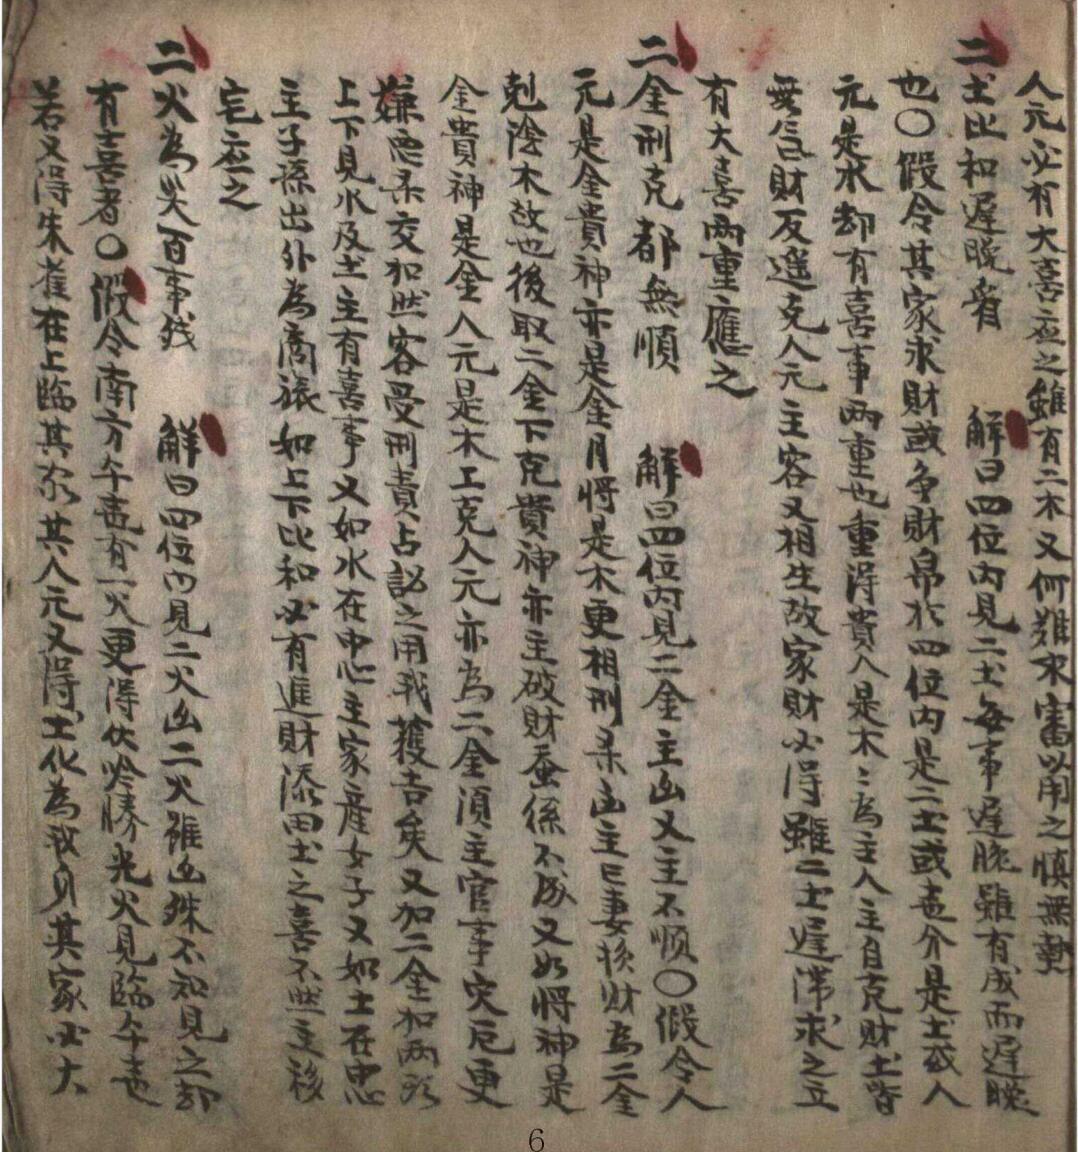 人元必有大喜应之雖有二木又何難求審以用之慎無執
二土比和遲晚看 解曰四位内見二土每事遲晚雖有成而遲晚
也〇假令其家求財或争財帛於四位内是二土或壵分是土或人
元是水却有喜事两重也重得貴人是木〻為主人主自克財土皆
無氣財反遥克人元主客又相生故家財必得雖二土遲滞求之立
有大喜两重應之
二金刑克都無順 解曰四位内見二金主凶又主不順〇假令人
元是金貴神亦是金月將是木更相刑杀凶主巳妻後财為二金
剋陰木故也後取二金下克貴神亦主破財蚕係不成又如將神是
金貴神是金人元是木上克人元亦為二金須主官事灾厄更
嫌恶杀交加然客受刑責占訟之用我獲吉矣又加二金和两形
上下見水及土主有喜事又如水在中心主家産女子又如土在中心
主子孫出外為商旅如上下比和必有進財添田土之喜不然主移
宅应之
二火為灾百事殘 解曰四位内見二火凶二火雖凶殊不知見之却
有喜者〇假令南方午壵有一火更得伏吟勝光火見臨午壵
若又得朱雀在上臨其
其人元又得土化為我身其家必大
6